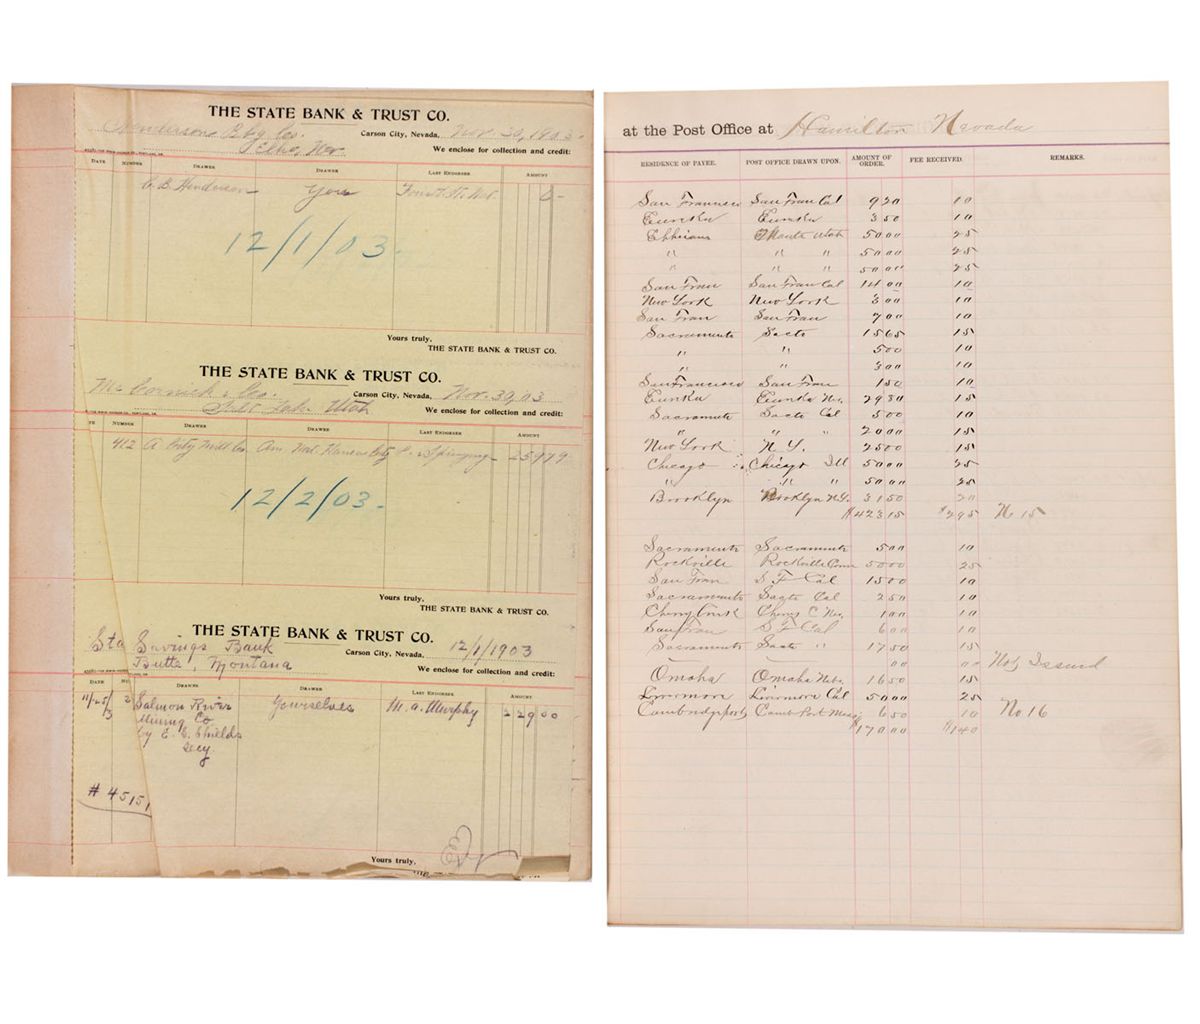 THE STATE BANK & TRUST CO.
Henderson Bkg Co. Carson City, Nevada, Nov. 30, 1903
Elko, Nev. We enclose for collection and credit:
DATE NUMBER DRAWER DRAWEE LAST ENDORSER AMOUNT
C. B. Henderson You
12/1/03.
Yours truly,
THE STATE BANK & TRUST CO.
THE STATE BANK & TRUST CO.
Mc Cornick & Co. Carson City, Nevada, Nov. 30, 03
Salt Lake Utah We enclose for collection and credit:
NUMBER DRAWER DRAWEE LAST ENDORSER AMOUNT
412 Kansas City 25979
12/2/03.
Yours truly,
THE STATE BANK & TRUST CO.
THE STATE BANK & TRUST CO.
Savings Bank Carson City, Nevada, 12/1/1903
Butte, Montana We enclose for collection and credit:
DATE DRAWER DRAWEE LAST ENDORSER AMOUNT
11/25/03 Salmon River Yourselves M. A. Murphy 22900
Mining Co
by E. C. Shields
Secy.
# 45151
Yours truly,
at the Post Office at Hamilton Nevada
RESIDENCE OF PAYEE. POST OFFICE DRAWN UPON. AMOUNT OF ORDER. FEE RECEIVED. REMARKS.
San Francisco San Fran Cal 920 10
Eureka Eureka 350 10
Utah 5000 25
" " " 5000 25
" " " 5000 25
San Fran San Fran Cal 1400 10
New York New York 300 10
San Fran San Fran 700 10
Sacramento Sacto 1565 15
" " 500 10
" 300 10
San Francisco San Fran 150 10
Eureka Eureka Nev. 2930 15
Sacramento Sacto Cal 500 10
" " " 2000 15
New York N. Y. 2500 15
Chicago Chicago Ill 5000 25
" " " 5000 25
Brooklyn Brooklyn N.Y. 3150 20
$42315 $295 No 15
Sacramento Sacramento 500 10
Rockville Rockville Conn 5000 25
San Fran S F Cal 1500 10
Sacramento Sacto Cal 250 10
Cherry Creek Cherry C Nev. 100 10
San Fran S F Cal 600 10
Sacramento Sacto " 1750 15
00 00 Not Issued
Omaha Omaha Nebr. 1650 15
Livermore Livermore Cal 5000 25
Cambridgeport Camb Port Mass 650 10 No 16
$17000 $140